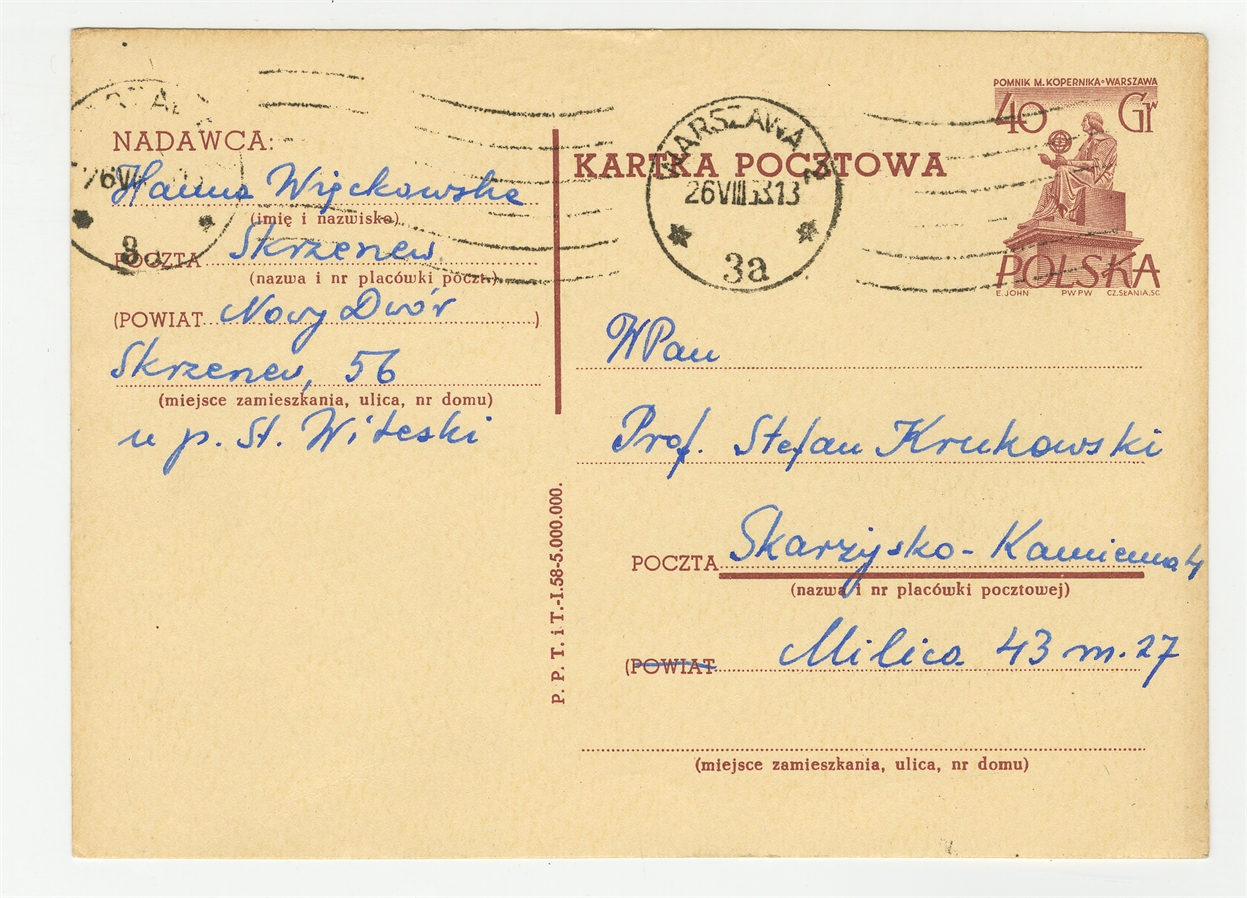 NADAWCA:
Hanna Więckowska
(imię i nazwisko)
POCZTA Skrzenew
(nazwa i nr placówki poczt.)
(POWIAT Nowy Dwór)
Skrzenew, 56
(miejsce zamieszkania, ulica, nr domu)
u p. St. Witeski
P. P. T. i T.-I.58-5.000.000.
KARTKA POCZTOWA
WARSZAWA 2
26 VIII 58 13
3a
POMNIK M. KOPERNIKA•WARSZAWA
40 Gr
POLSKA
E. JOHN PWPW CZ.SŁANIA.SC.
WPan
Prof. Stefan Krukowski
POCZTA Skarżysko-Kamienna 4
(nazwa i nr placówki pocztowej)
(POWIAT Milica 43 m. 27
(miejsce zamieszkania, ulica, nr domu)